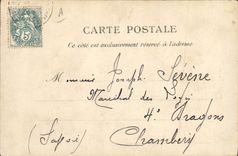 CARTE POSTALE
Ce côté est exclusivement réservé à l'adresse
Monsieur Joseph Sévène
Maréchal des Logis
4e Dragons
(Savoie) Chambéry